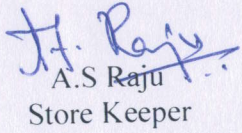 A. Raju
A.S Raju
Store Keeper